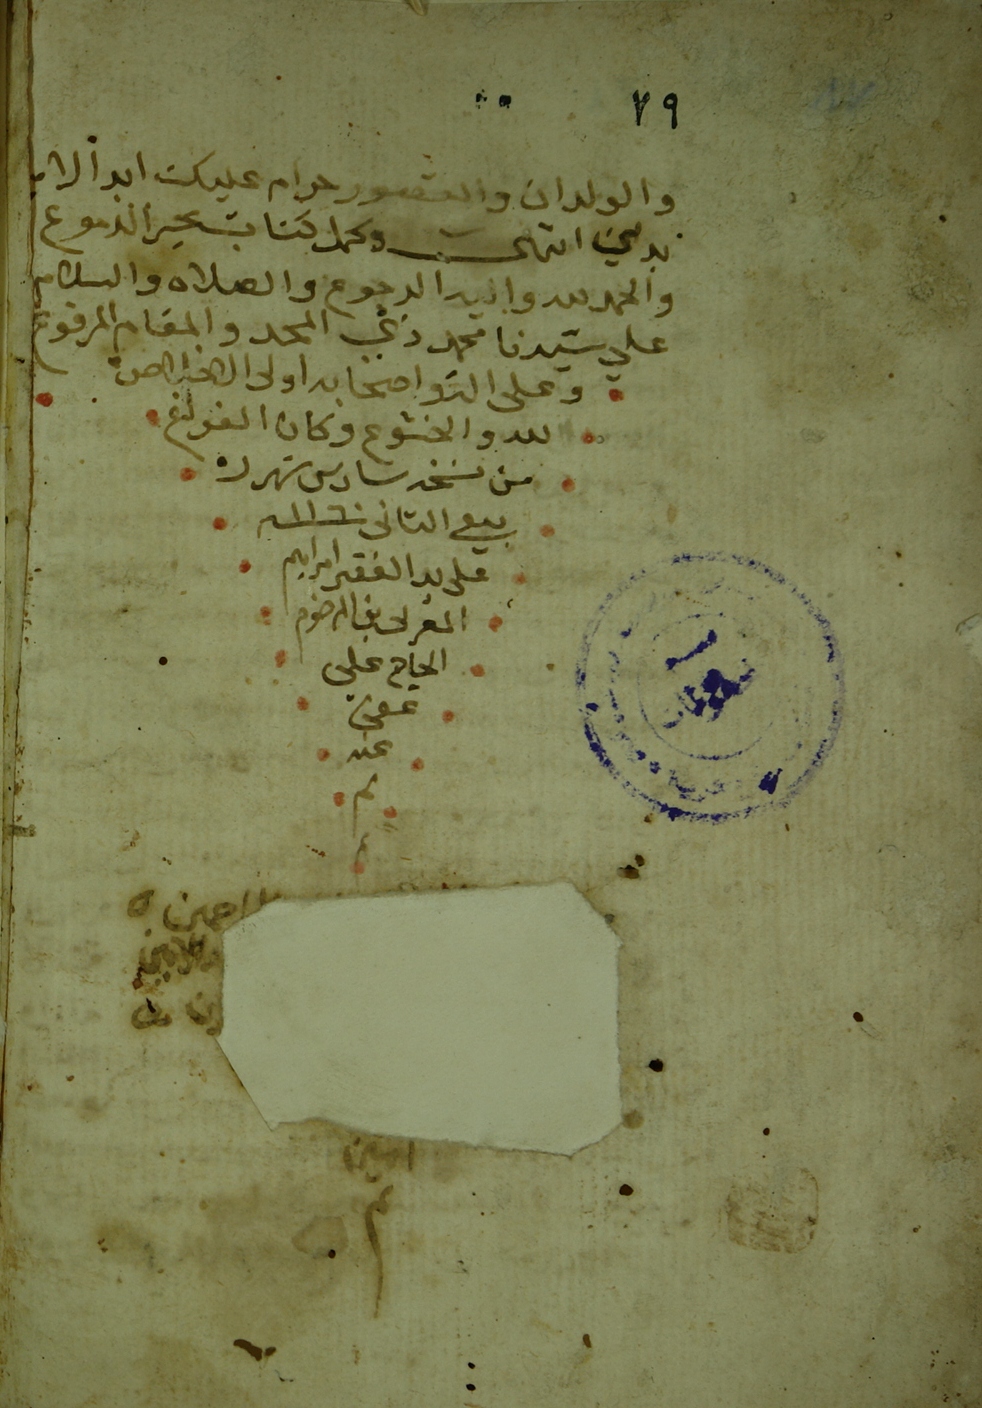 ٢٩
والولدان والقصور حرام عليك ابد الا
بدين انتهى وكمل كتاب بحر الدموع
والحمد لله واليه الرجوع والصلاه والسلام
على سيدنا محمد ذي المجد والمقام المرفوع
وعلى اله واصحابه اولى الاخلاص
لله والخشوع وكان الفراغ
من نسخه سادس شهر ر
بيع الثاني سنة
على يد الفقير ابراهيم
المغربي بن المرحوم
الحاج علي
عفي
عنه
م
امين
م